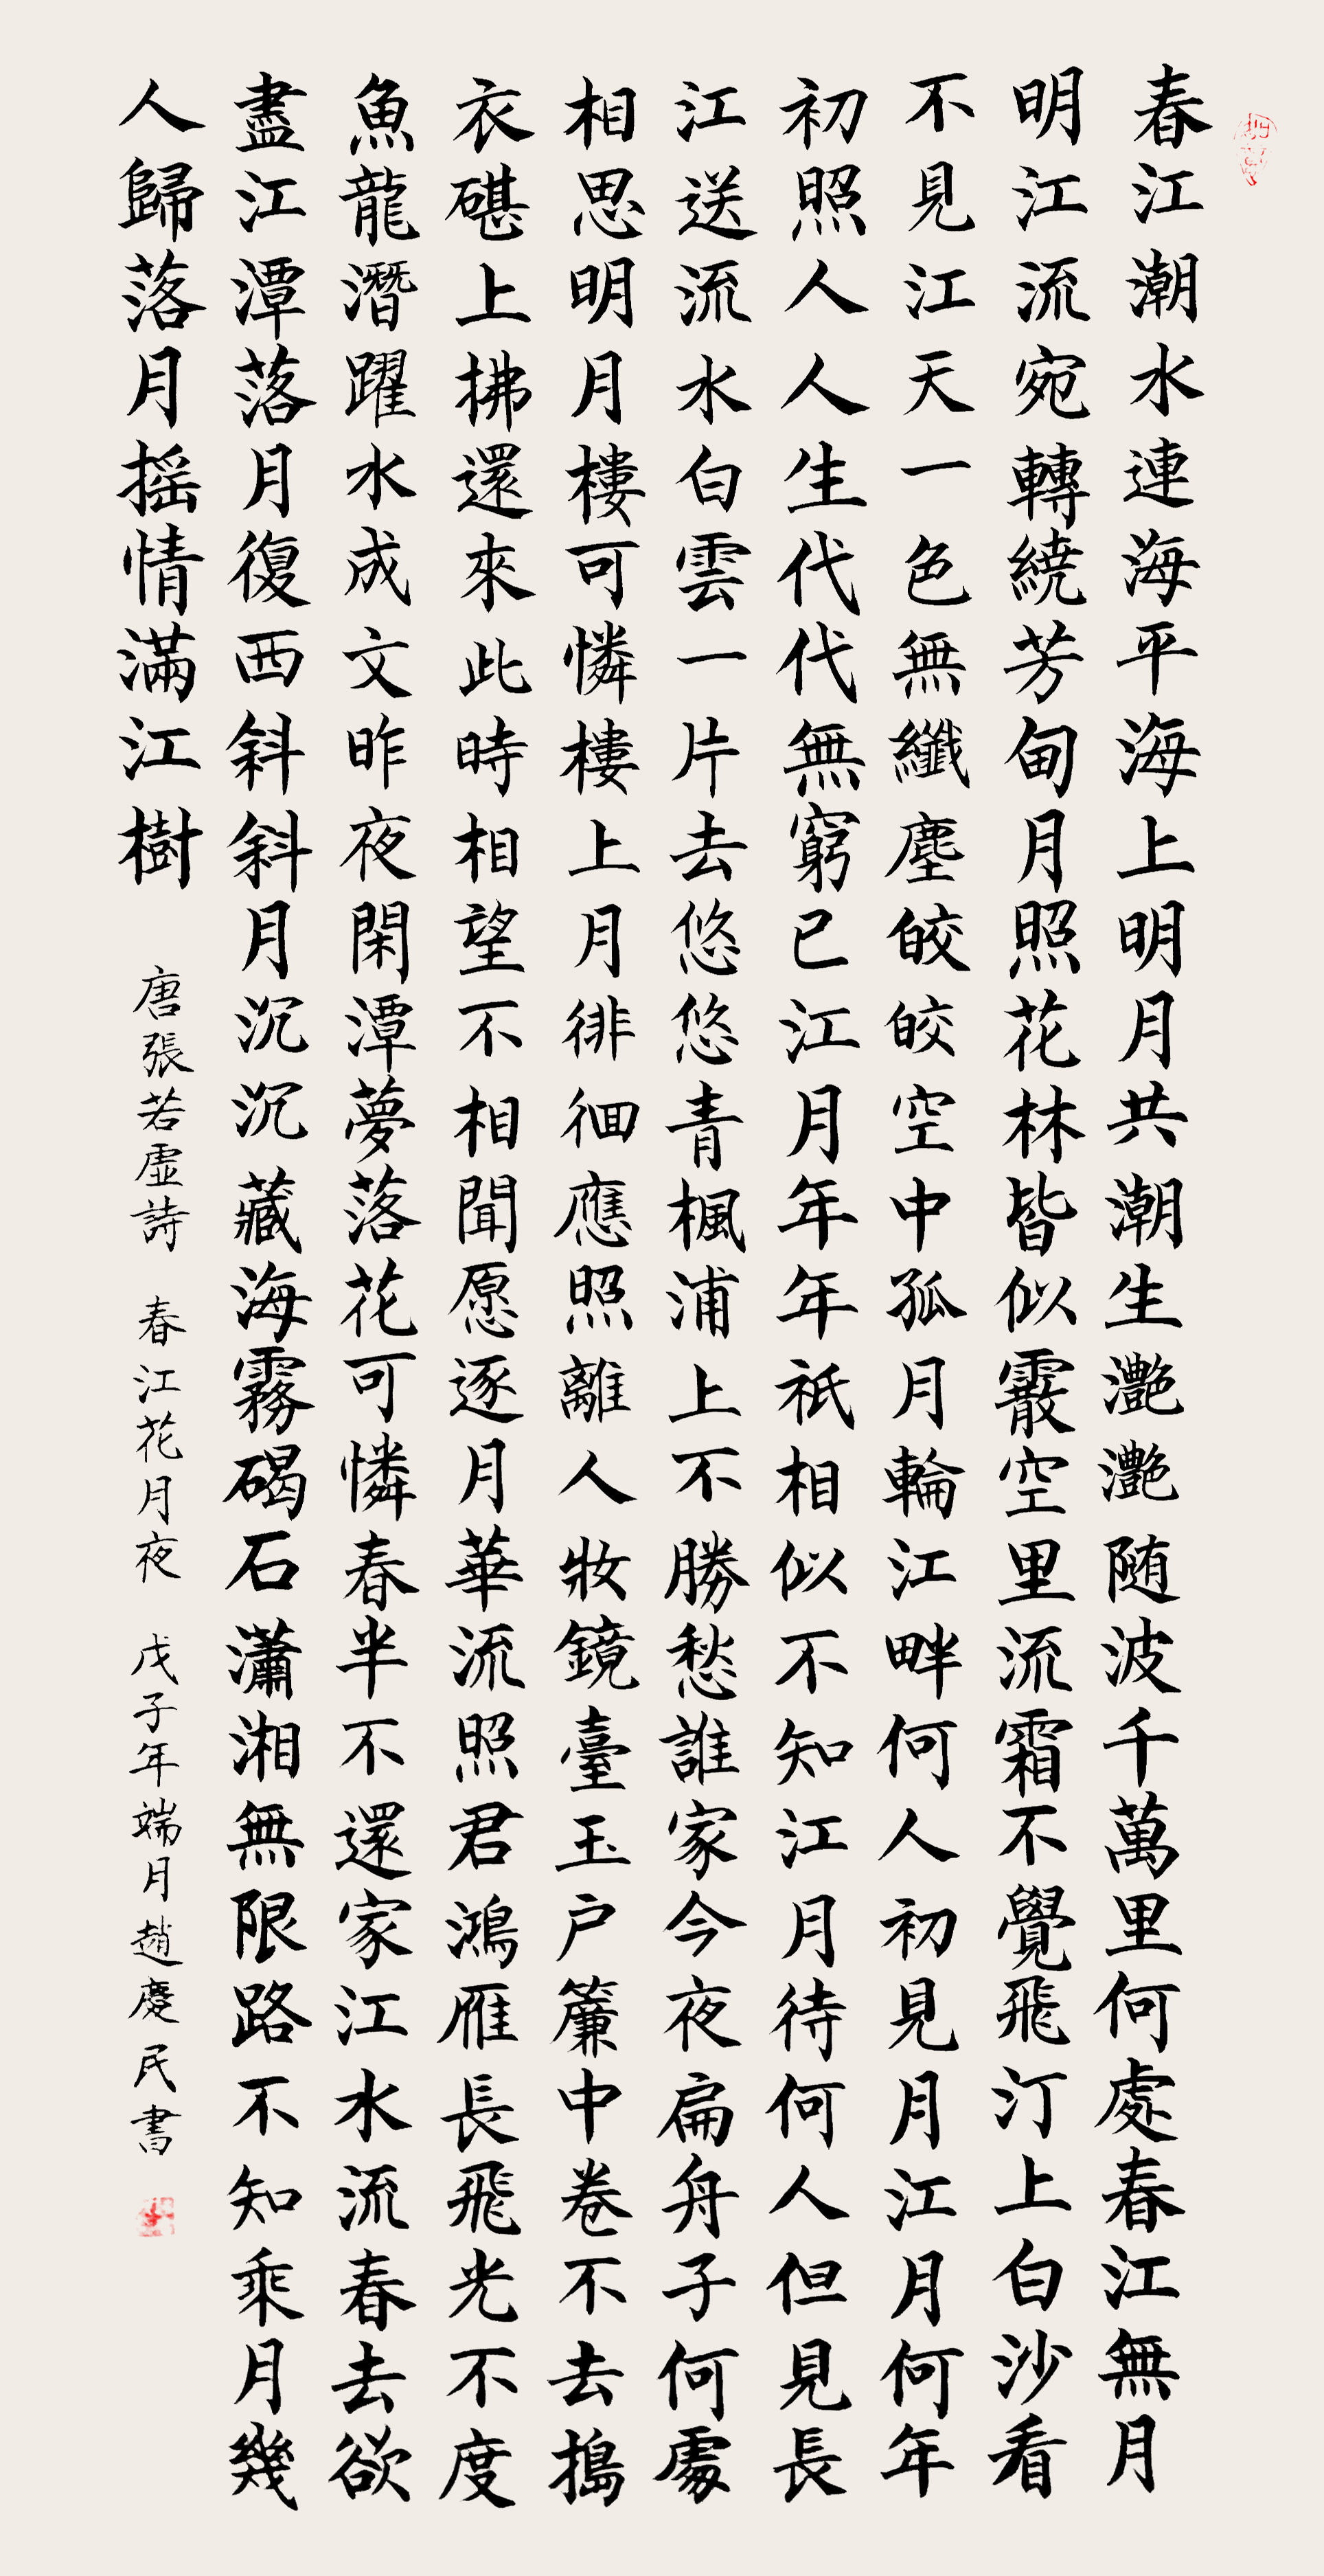 春江潮水連海平海上明月共潮生灧灧随波千萬里何處春江無月
明江流宛轉繞芳甸月照花林皆似霰空里流霜不覺飛汀上白沙看
不見江天一色無纖塵皎皎空中孤月輪江畔何人初見月江月何年
初照人人生代代無窮已江月年年祇相似不知江月待何人但見長
江送流水白雲一片去悠悠青楓浦上不勝愁誰家今夜扁舟子何處
相思明月樓可憐樓上月徘徊應照離人妝鏡臺玉户簾中卷不去搗
衣碪上拂還來此時相望不相聞愿逐月華流照君鴻雁長飛光不度
魚龍潛躍水成文昨夜閑潭夢落花可憐春半不還家江水流春去欲
盡江潭落月復西斜斜月沉沉藏海霧碣石瀟湘無限路不知乘月幾
人歸落月摇情滿江樹
唐張若虛詩 春江花月夜 戊子年端月趙慶民書